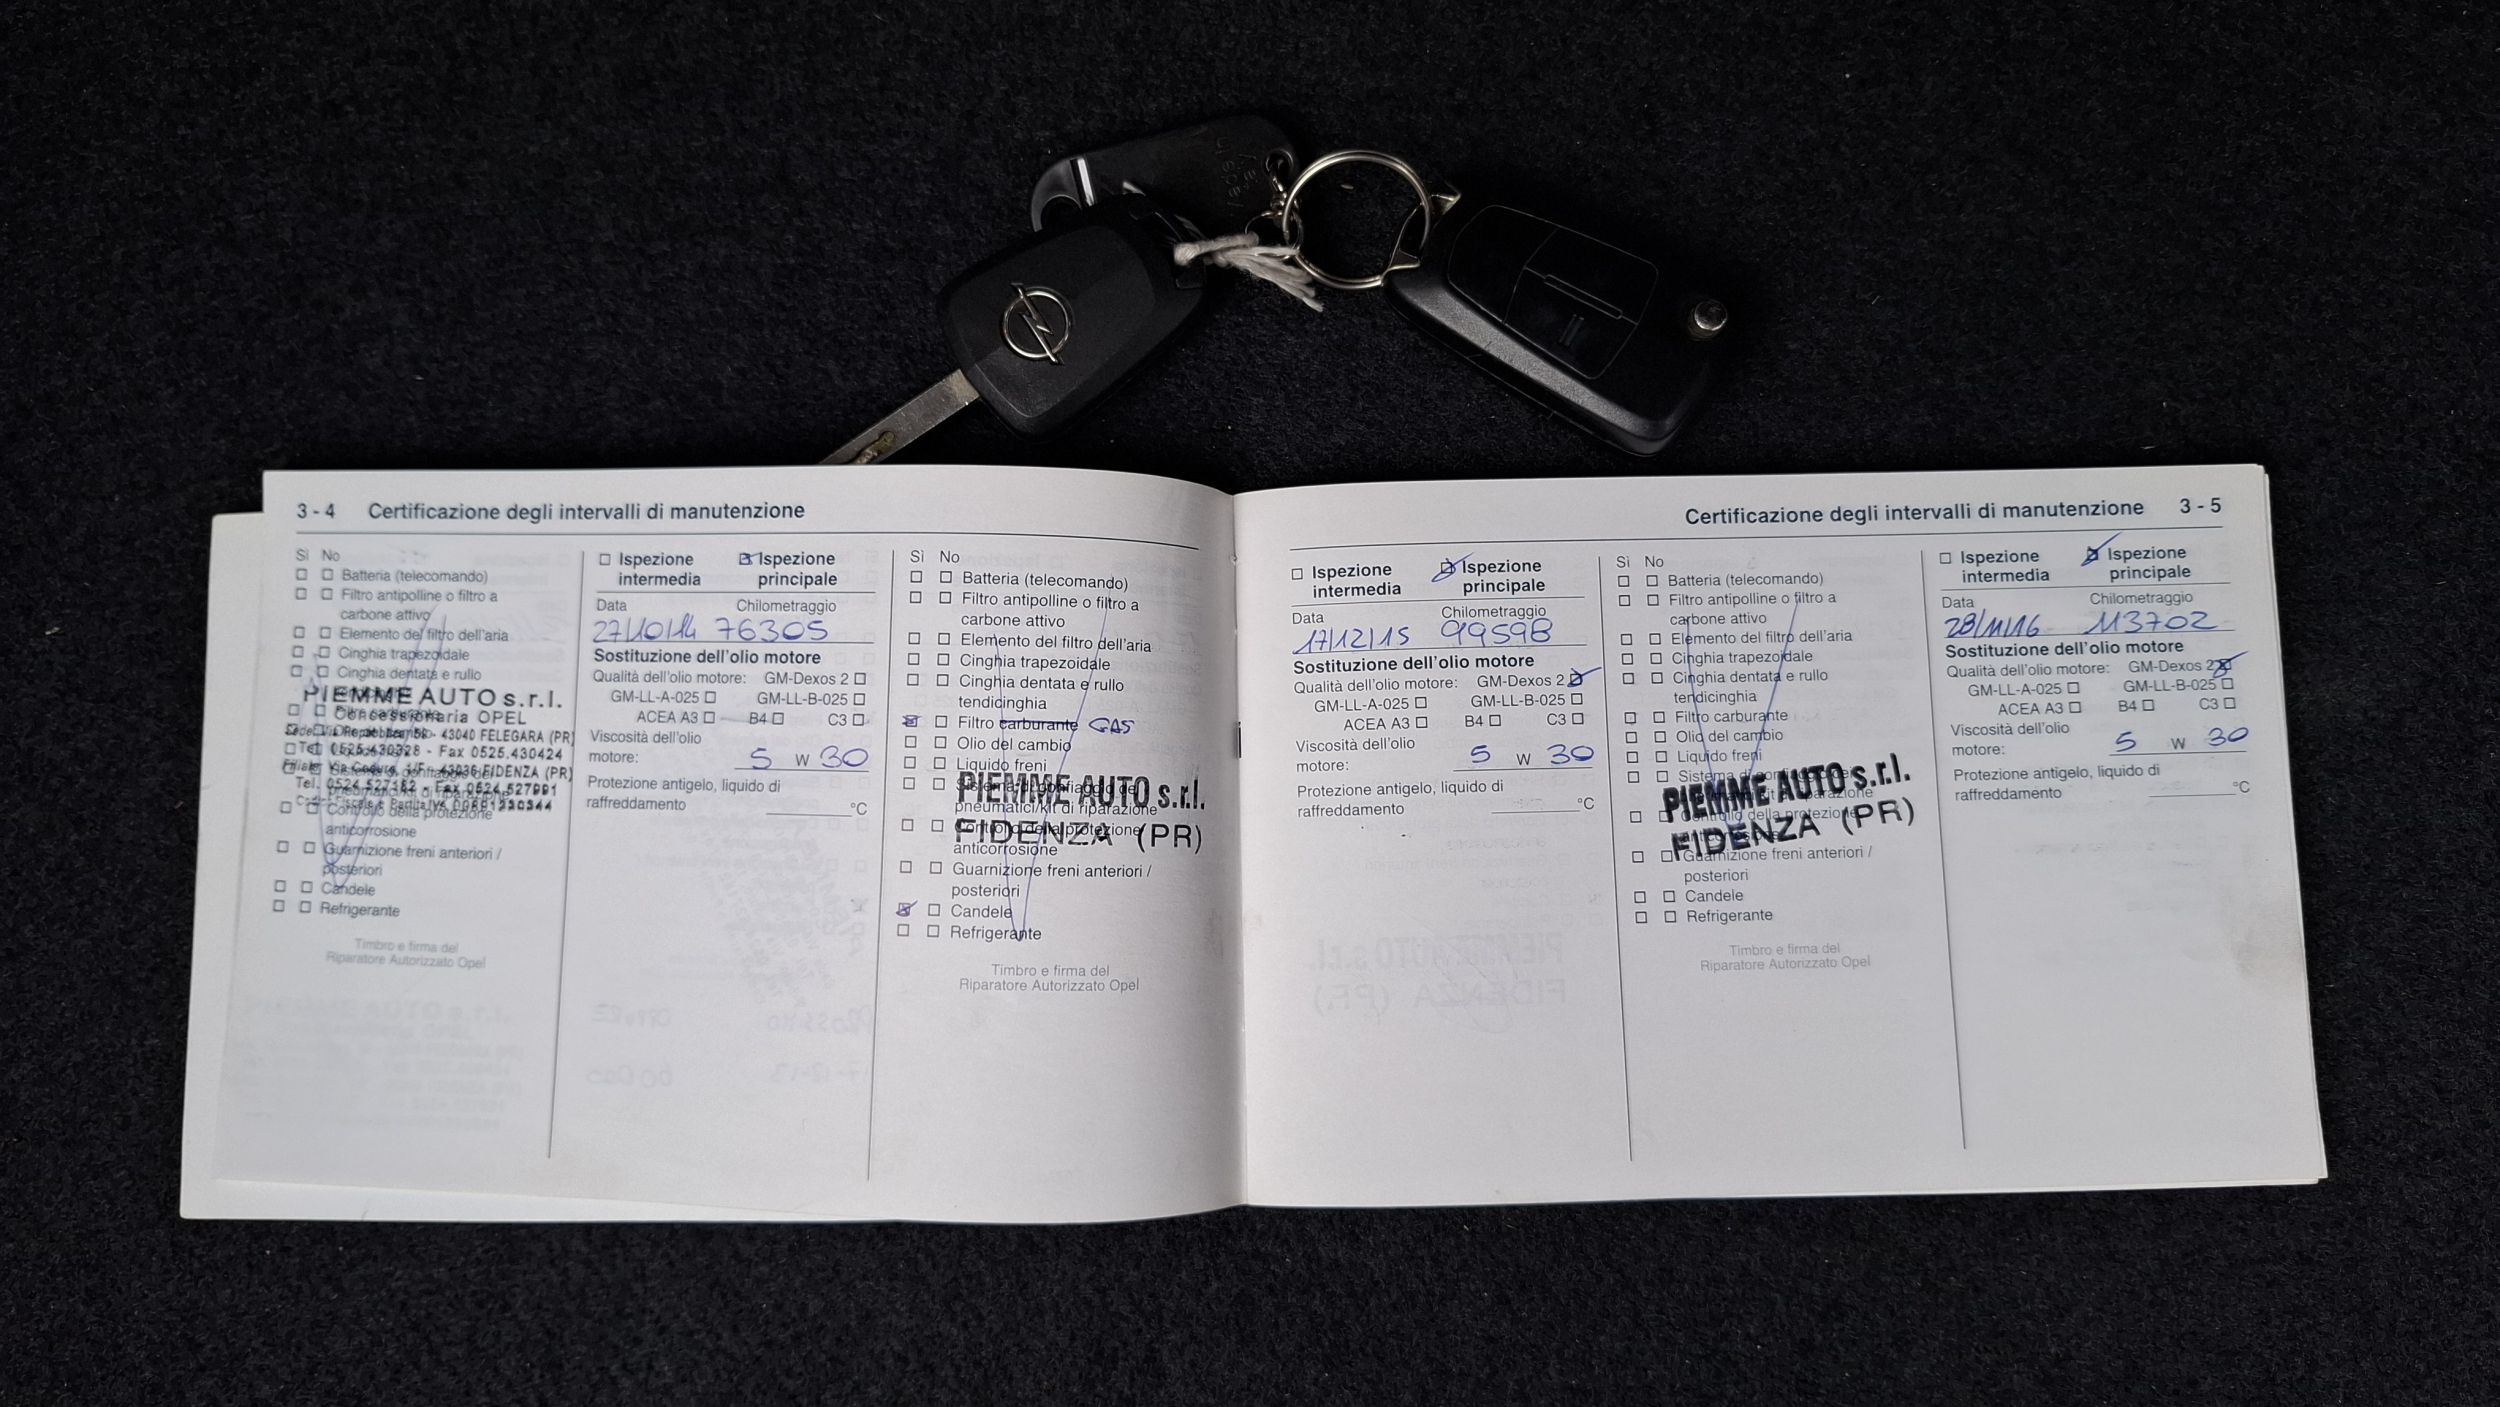 3 - 4 Certificazione degli intervalli di manutenzione
Sì No
Batteria (telecomando)
Filtro antipolline o filtro a
carbone attivo
Elemento del filtro dell'aria
Cinghia trapezoidale
Cinghia dentata e rullo
PIEMME AUTO s.r.l.
Concessionaria OPEL
43040 FELEGARA (PR)
Tel. 0525.430328 - Fax 0525.430424
43036 FIDENZA (PR)
Tel. 0524.527182 - Fax 0524.527991
Controllo della protezione
anticorrosione
Guarnizione freni anteriori /
posteriori
Candele
Refrigerante
Timbro e firma del
Riparatore Autorizzato Opel
Ispezione Ispezione
intermedia principale
Data Chilometraggio
27/10/14 76305
Sostituzione dell'olio motore
Qualità dell'olio motore: GM-Dexos 2
GM-LL-A-025 GM-LL-B-025
ACEA A3 B4 C3
Viscosità dell'olio
motore: 5 W 30
Protezione antigelo, liquido di
raffreddamento °C
Sì No
Batteria (telecomando)
Filtro antipolline o filtro a
carbone attivo
Elemento del filtro dell'aria
Cinghia trapezoidale
Cinghia dentata e rullo
tendicinghia
Filtro carburante GAS
Olio del cambio
Liquido freni
Sistema di gonfiaggio dei
PIEMME AUTO s.r.l.
pneumatici/kit di riparazione
Controllo della protezione
FIDENZA (PR)
anticorrosione
Guarnizione freni anteriori /
posteriori
Candele
Refrigerante
Timbro e firma del
Riparatore Autorizzato Opel
Certificazione degli intervalli di manutenzione 3 - 5
Ispezione Ispezione
intermedia principale
Data Chilometraggio
17/12/15 99598
Sostituzione dell'olio motore
Qualità dell'olio motore: GM-Dexos 2
GM-LL-A-025 GM-LL-B-025
ACEA A3 B4 C3
Viscosità dell'olio
motore: 5 W 30
Protezione antigelo, liquido di
raffreddamento °C
Sì No
Batteria (telecomando)
Filtro antipolline o filtro a
carbone attivo
Elemento del filtro dell'aria
Cinghia trapezoidale
Cinghia dentata e rullo
tendicinghia
Filtro carburante
Olio del cambio
Liquido freni
Sistema di gonfiaggio dei
PIEMME AUTO s.r.l.
Controllo della protezione
FIDENZA (PR)
Guarnizione freni anteriori /
posteriori
Candele
Refrigerante
Timbro e firma del
Riparatore Autorizzato Opel
Ispezione Ispezione
intermedia principale
Data Chilometraggio
28/11/16 113702
Sostituzione dell'olio motore
Qualità dell'olio motore: GM-Dexos 2
GM-LL-A-025 GM-LL-B-025
ACEA A3 B4 C3
Viscosità dell'olio
motore: 5 W 30
Protezione antigelo, liquido di
raffreddamento °C